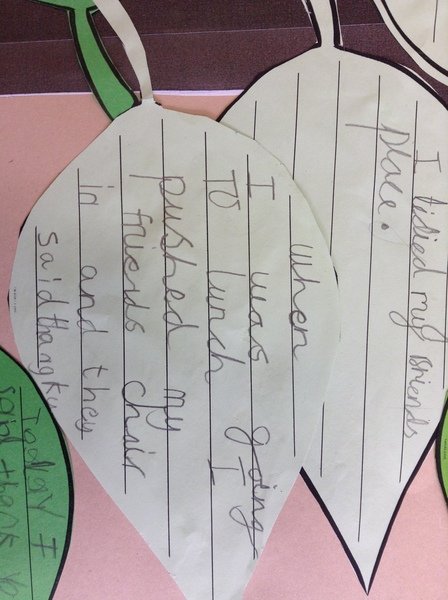 I tidied my friends
place.
when
I was going
TO lunch I
pushed my
friends chair
in and they
said thangku
Today I
said thank yo